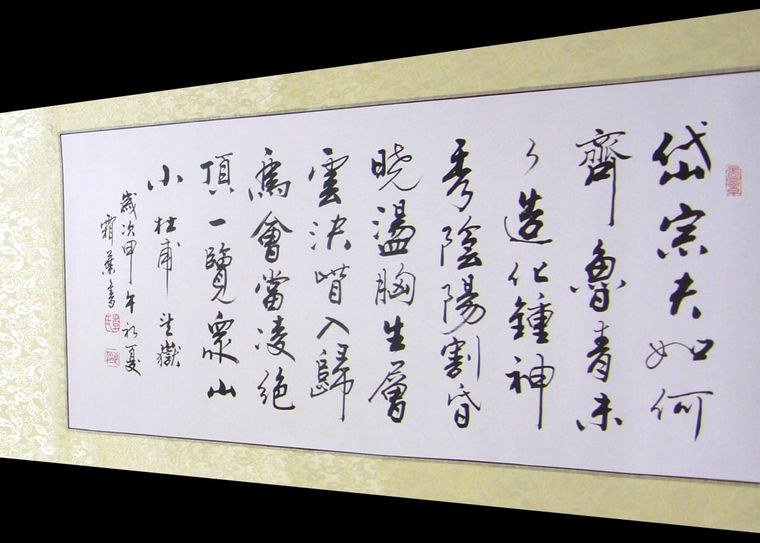 岱宗夫如何
齊魯青未
了造化鍾神
秀陰陽割昏
曉盪胸生層
雲決眥入歸
鳥會當凌絕
頂一覽眾山
小 杜甫望嶽
歲次甲午初夏
霜葉書